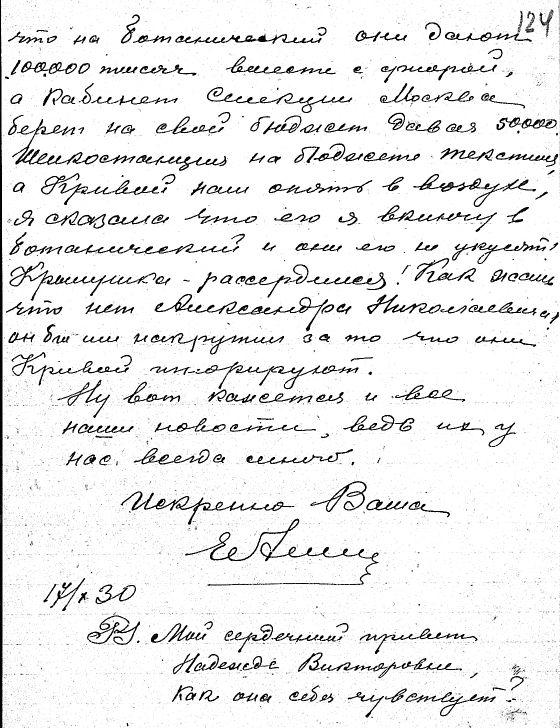 124
что на Ботанический они дают
100.000 тысяч вместе с флорой,
а Кабинет Селекции Москва
берет на свой бюджет давая 50.000.
Шелкостанция на бюджете текстиля,
а Кривой наш опять в воздухе,
я сказала что его я вкину в
Ботанический и они его не укусят!
Крышушка - рассердился! Как жаль
что нет Александра Николаевича,
он бы им накрутил за то что они
Кривой игнорируют.
Ну вот кажется и все
наши новости, ведь их у
нас всегда много.
Искренно Ваша
17/X 30
PS. Мой сердечный привет
Надежде Викторовне,
как она себя чувствует?